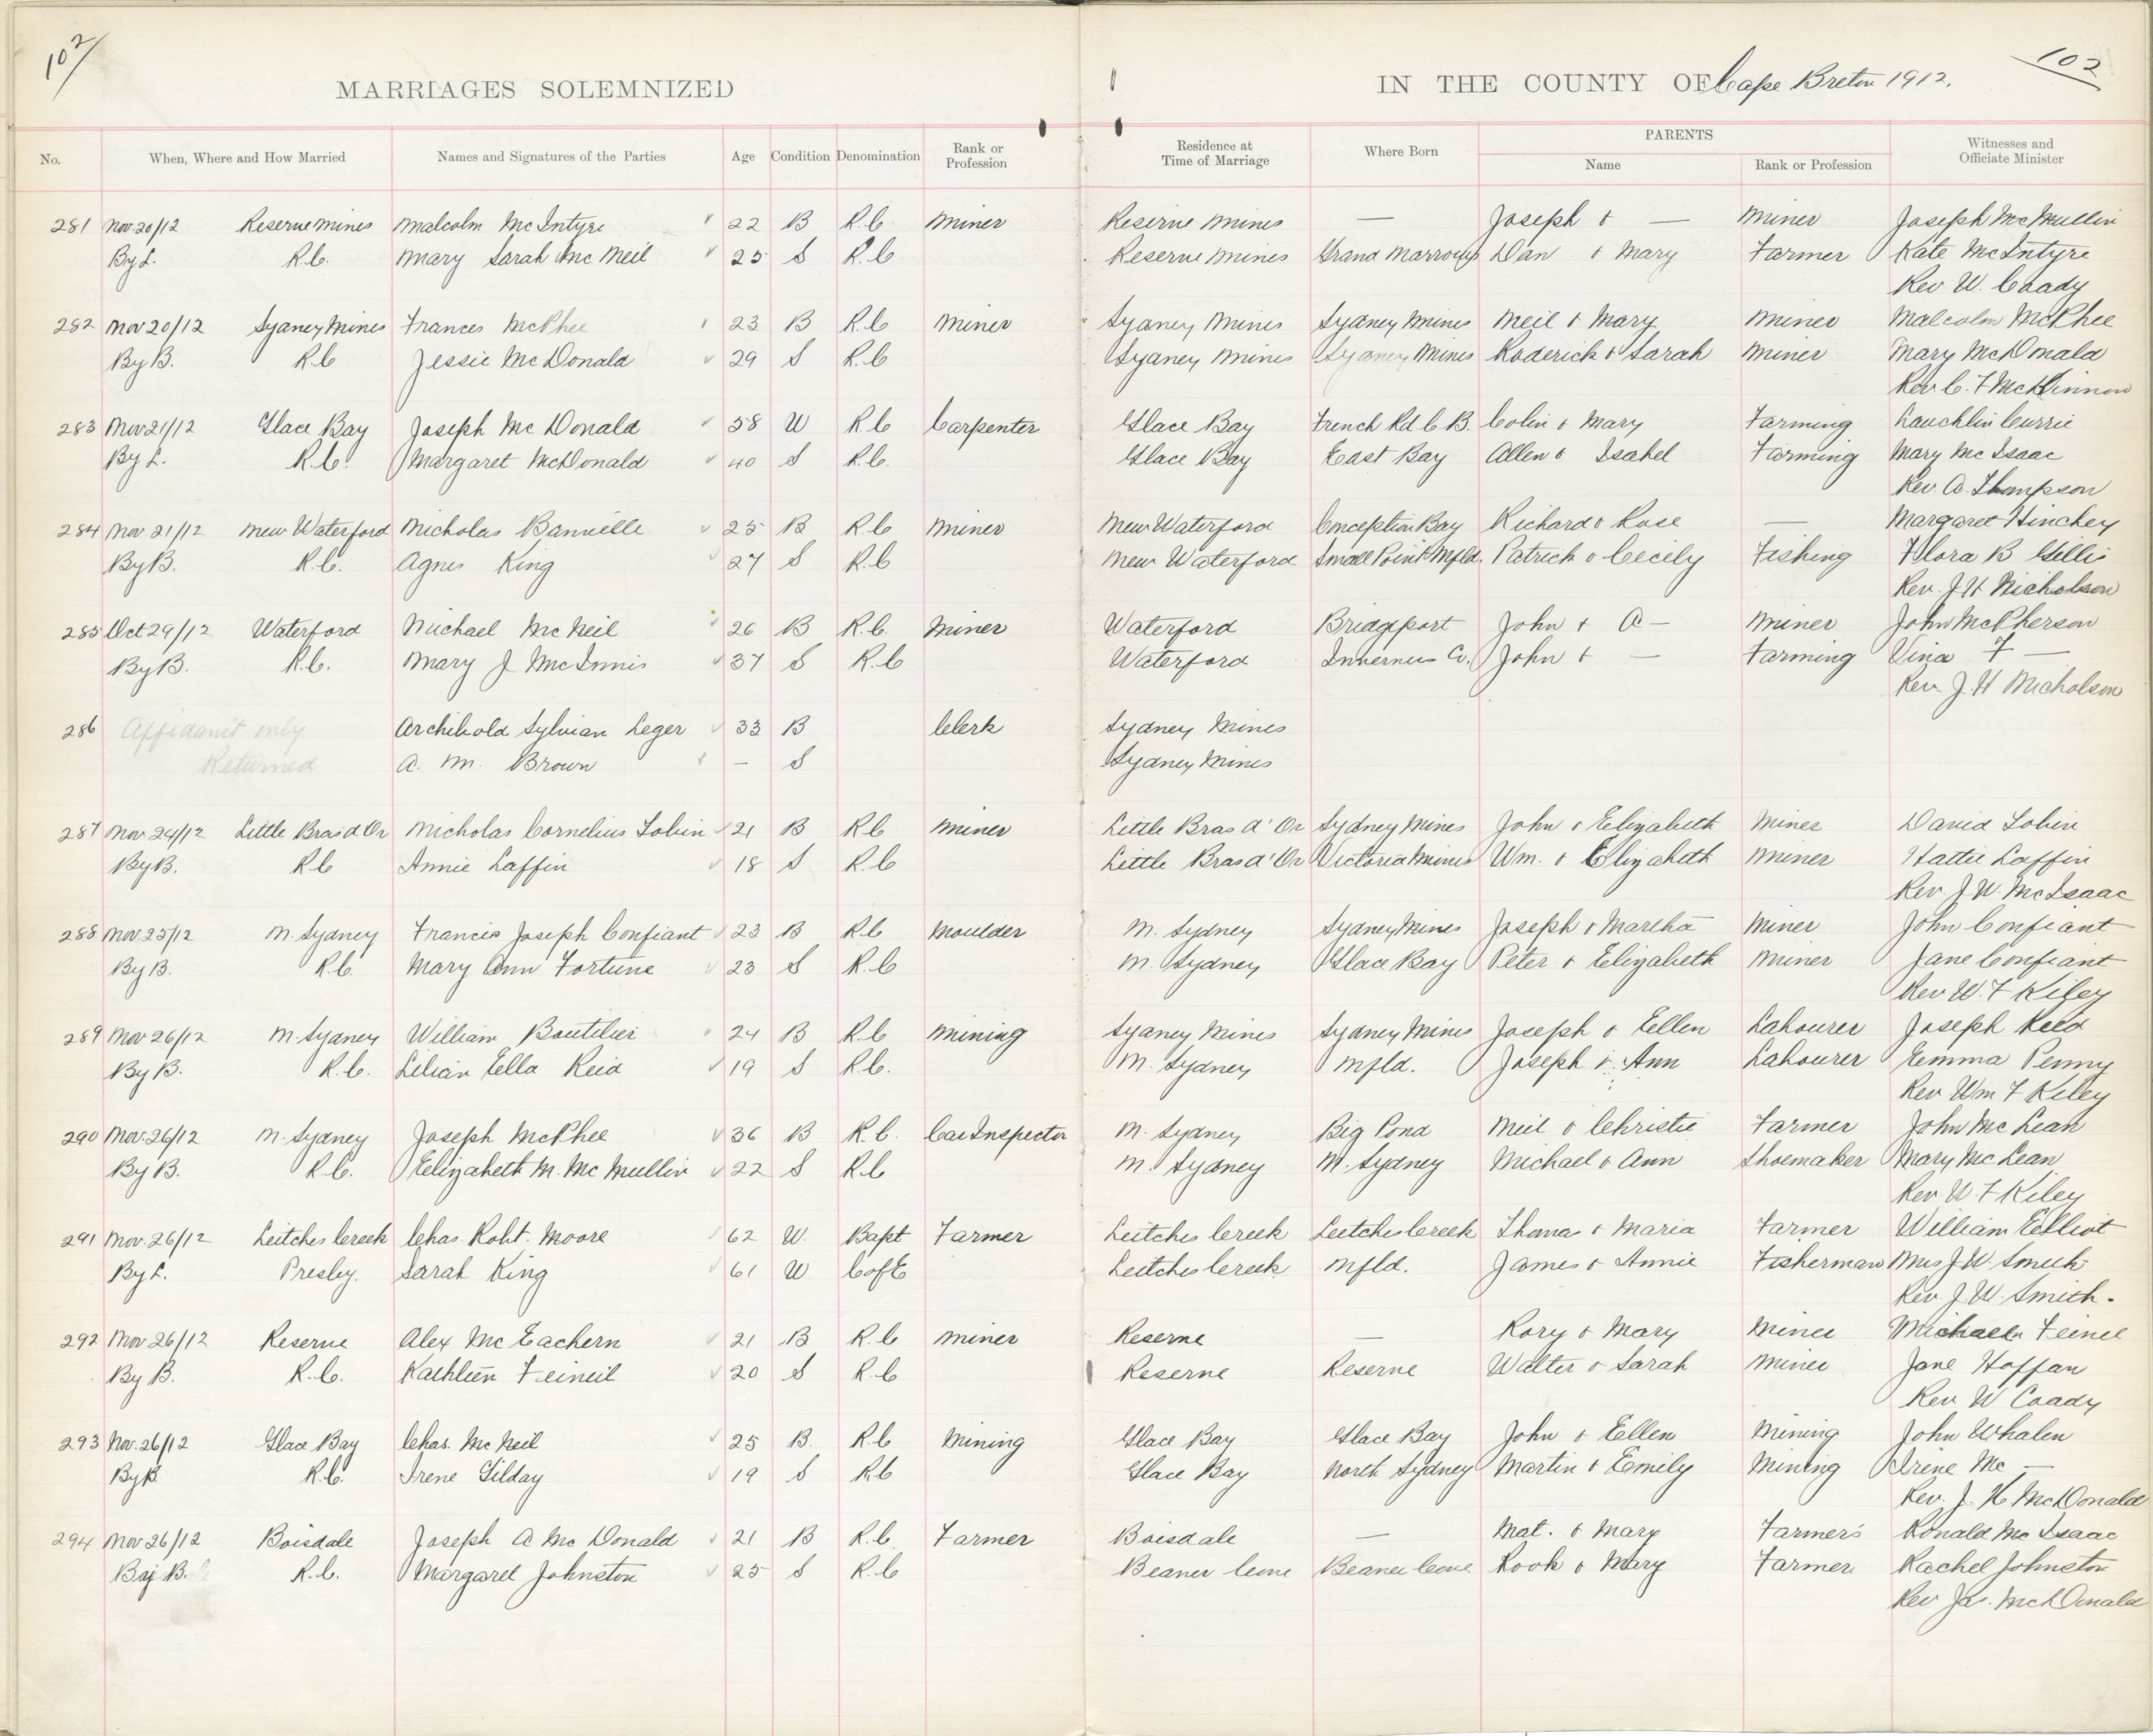 102
102
MARRIAGES SOLEMNIZED IN THE COUNTY OF Cape Breton 1912.
No. When, Where and How Married Names and Signatures of the Parties Age Condition Denomination Rank or Profession Residence at Time of Marriage Where Born PARENTS Name Rank or Profession Witnesses and Officiate Minister
281 Nov. 20/12 Reserve Mines Malcolm McIntyre 22 B R.C Miner Reserve Mines — Joseph & — Miner Joseph McMullin
By L. R.C. Mary Sarah McNeil 25 S R.C Reserve Mines Grand Dan & Mary Farmer Kate McIntyre
Rev. W. Coady
282 Nov 20/12 Sydney Mines Frances McPhee 23 B R.C Miner Sydney Mines Sydney Mines Neil & Mary Miner Malcolm McPhee
By B. R.C Jessie McDonald 29 S R.C Sydney Mines Sydney Mines Roderick & Sarah Miner Mary McDonald
Rev C. F McKinnon
283 Nov 21/12 Glace Bay Joseph McDonald 58 W R.C Carpenter Glace Bay French Rd C.B. Colin & Mary Farming Lauchlin Currie
By L. R.C. Margaret McDonald 40 S R.C. Glace Bay East Bay Allen & Isabel Farming Mary McIsaac
Rev. A. Thompson
284 Nov 21/12 New Waterford Nicholas 25 B R.C Miner New Waterford Conception Bay Richard & Rose — Margaret Hinchey
By B. R.C. Agnes King 27 S R.C New Waterford Small Point Nfld. Patrick & Cecily Fishing Flora B Gillis
Rev. J H Nicholson
285 Oct 29/12 Waterford Michael McNeil 26 B R.C. Miner Waterford Bridgeport John & A — Miner John McPherson
By B. R.C. Mary J McInnis 37 S R.C Waterford Inverness Co. John & — Farming Vina F —
Rev. J. H Nicholson
286 Affidavit only Archibold Sylvian Leger 33 B Clerk Sydney Mines
Returned A. M. Brown — S Sydney Mines
287 Nov 24/12 Little Bras d Or Nicholas Cornelius Tobin 21 B R.C Miner Little Bras d' Or Sydney Mines John & Elizabeth Miner David Tobin
By B. R.C Annie Laffin 18 S R.C Little Bras d' Or Victoria Mines Wm. & Elizabeth Miner Hattie Laffin
Rev. J. W. McIsaac
288 Nov. 25/12 N. Sydney Francis Joseph Confiant 23 B R.C Moulder N. Sydney Sydney Mines Joseph & Martha Miner John Confiant
By B. R.C. Mary Ann Fortune 23 S R.C N. Sydney Glace Bay Peter & Elizabeth Miner Jane Confiant
Rev W. F Kiley
289 Nov 26/12 N. Sydney William Boutilier 24 B R.C Mining Sydney Mines Sydney Mines Joseph & Ellen Labourer Joseph Reid
By B. R.C. Lilian Ella Reid 19 S R.C. N. Sydney Nfld. Joseph & Ann Labourer Emma Penny
Rev Wm F Kiley
290 Nov. 26/12 N. Sydney Joseph McPhee 36 B R.C. Car Inspector N. Sydney Big Pond Neil & Christie Farmer John McLean
By B. R.C. Elizabeth M. McMullin 22 S R.C N. Sydney N. Sydney Michael & Ann Shoemaker Mary McLean
Rev. W. F Kiley
291 Nov. 26/12 Leitches Creek Chas. Robt. Moore 62 W. Bapt Farmer Leitches Creek Leitches Creek Thomas & Maria Farmer William Elliot
By L. Presby. Sarah King 61 W C of E Leitches Creek Nfld. James & Annie Fisherman Mrs J. W. Smith
Rev. J. W. Smith.
292 Nov 26/12 Reserve Alex McEachern 21 B R.C Miner Reserve — Rory & Mary Miner Michael
By B. R.C. Kathleen 20 S R.C Reserve Reserve Walter & Sarah Miner Jane Haffan
Rev. W Coady
293 Nov. 26/12 Glace Bay Chas. McNeil 25 B. R.C Mining Glace Bay Glace Bay John & Ellen Mining John Whalen
By B. R.C. Irene Gilday 19 S R.C Glace Bay North Sydney Martin & Emily Mining Irene Mc —
Rev. J. H McDonald
294 Nov 26/12 Boisdale Joseph A McDonald 21 B R.C Farmer Boisdale — Mat. & Mary Farmer Ronald McIsaac
By B. R.C. Margaret Johnston 25 S R.C Beaver Cove Beaver Cove Rook & Mary Farmer Rachel Johnston
Rev Jas. McDonald